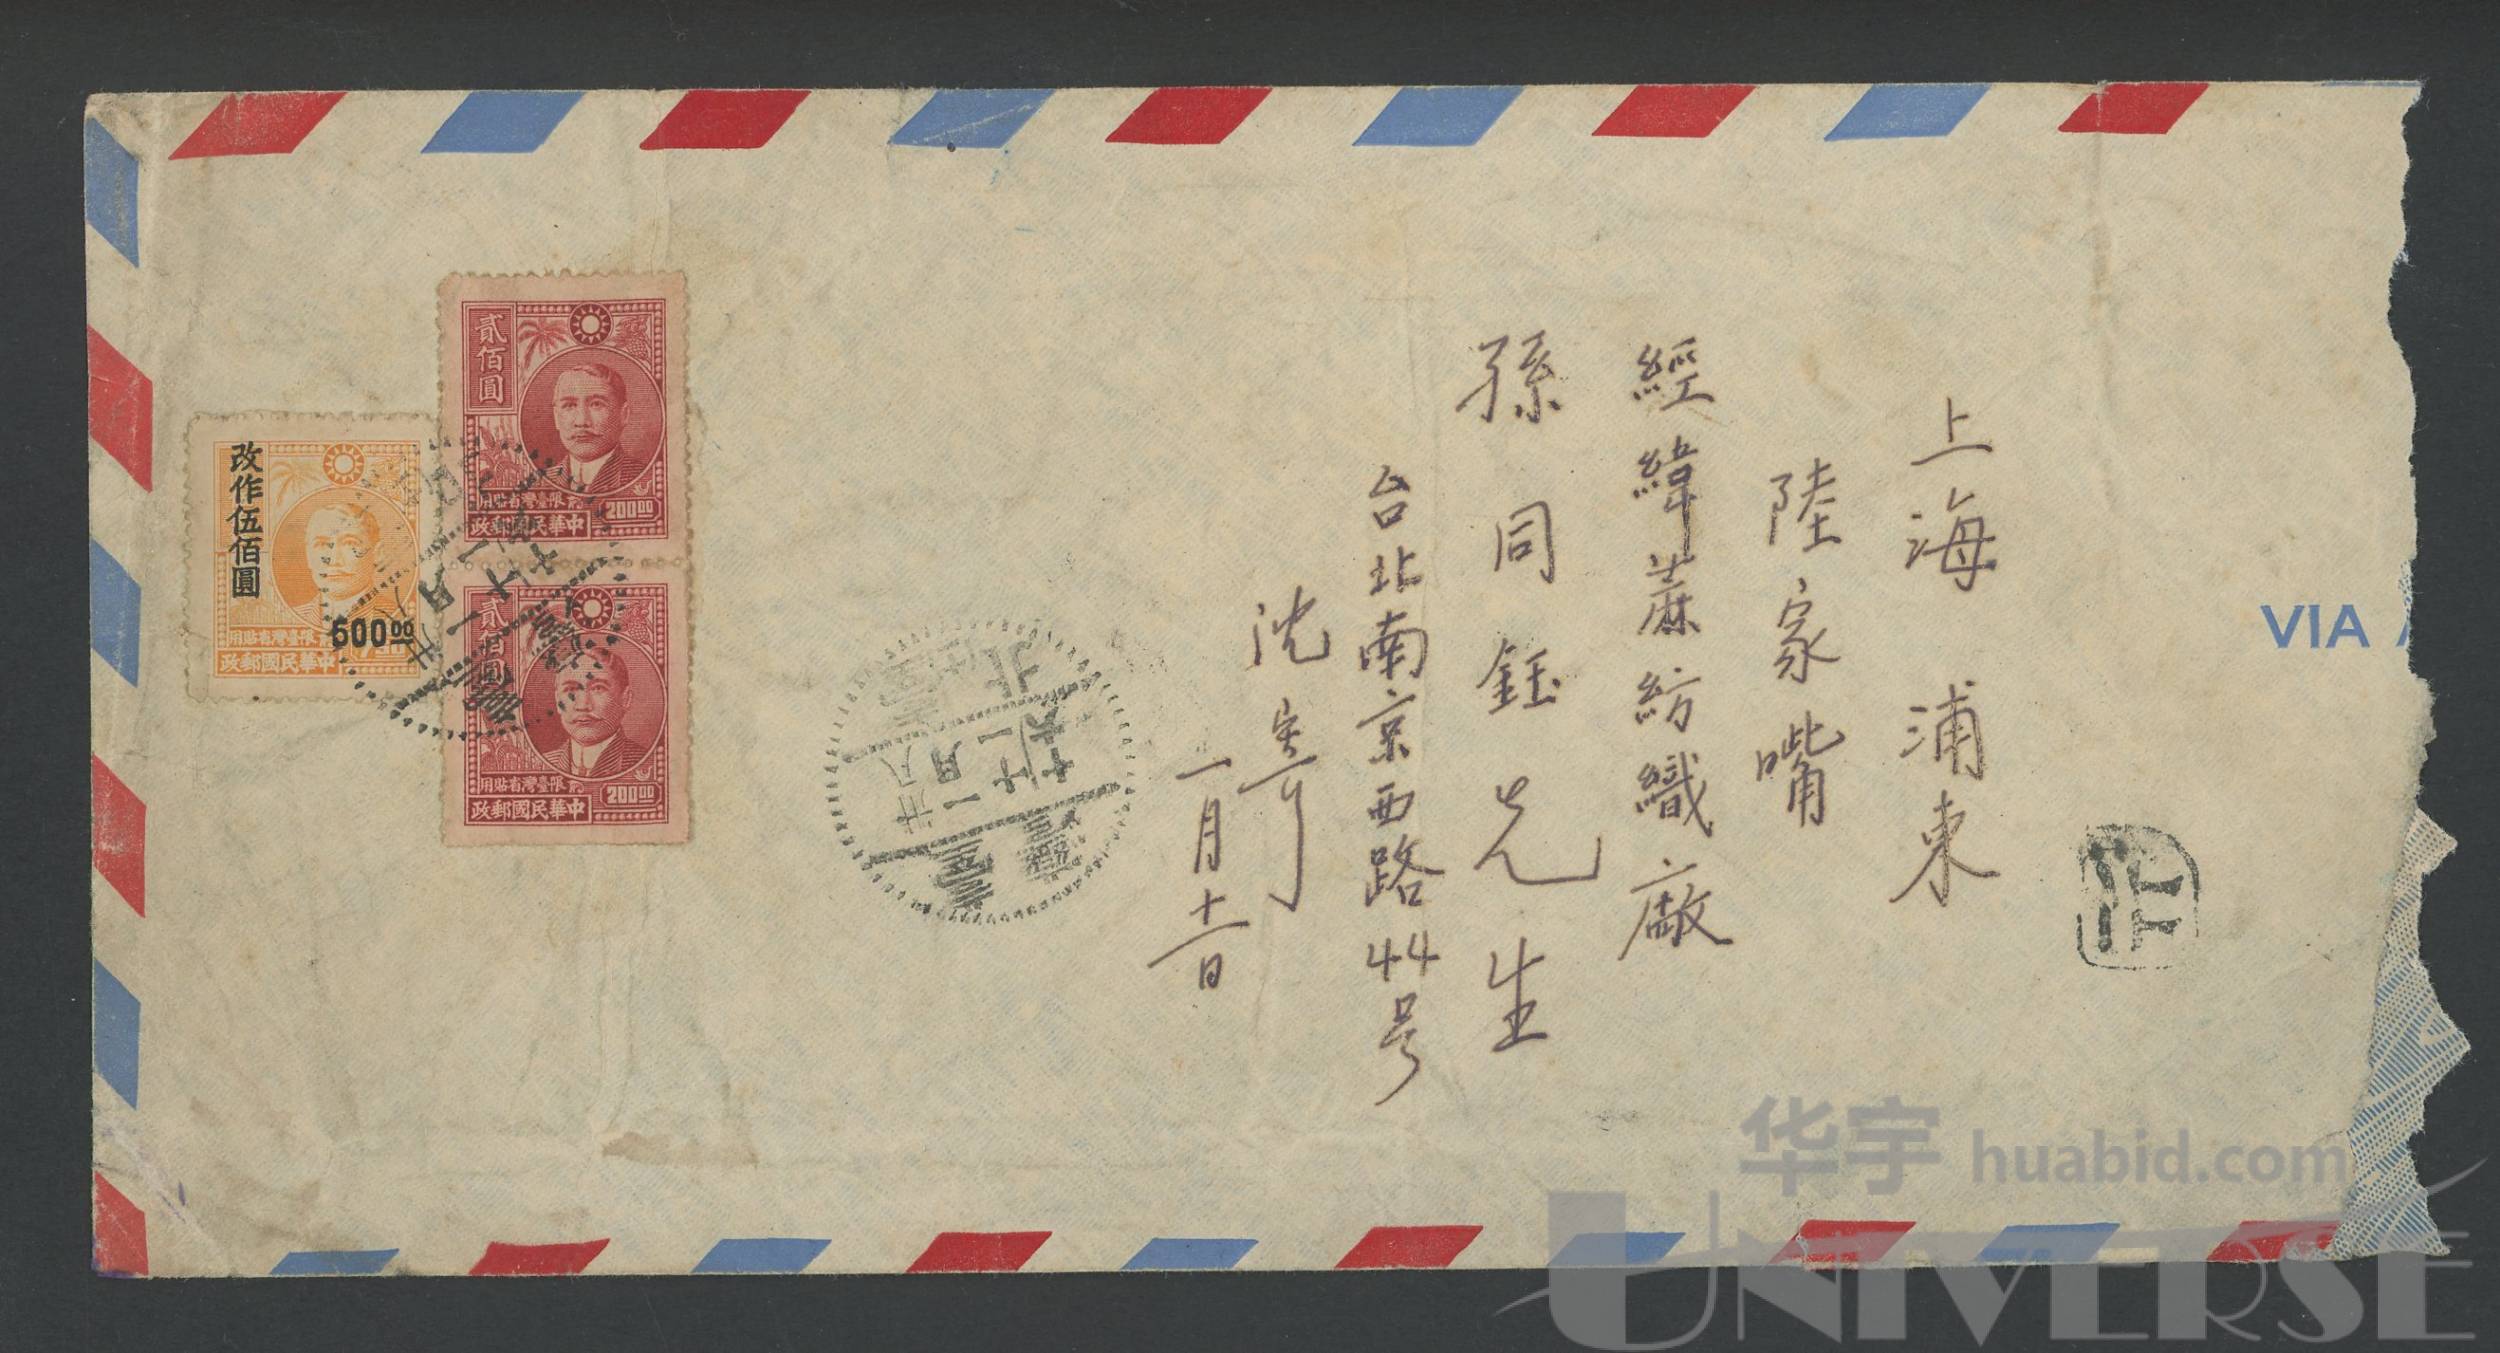 上海浦東
陸家嘴
經緯蔴紡織廠
孫同鈺先生
台北南京西路44号
沈寄
一月十一日
VIA
改作伍佰圓
500.00
限臺灣省貼用
中華民國郵政
貳佰圓
限臺灣省貼用
200.00
中華民國郵政
貳佰圓
限臺灣省貼用
200.00
中華民國郵政
臺北
卅八
一月
臺灣
华宇 huabid.com
UNIVERSE